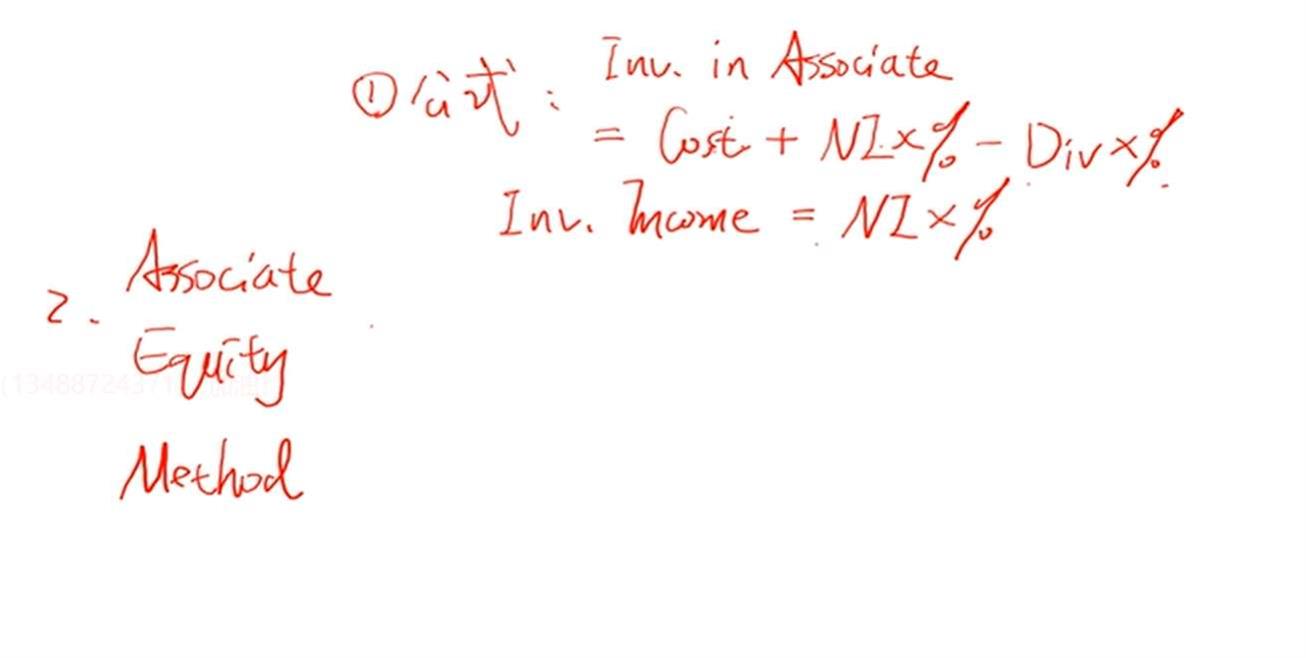 ①公式: Inv. in Associate
= Cost + NI×% - Div×%
Inv. Income = NI×%
2. Associate
Equity
Method